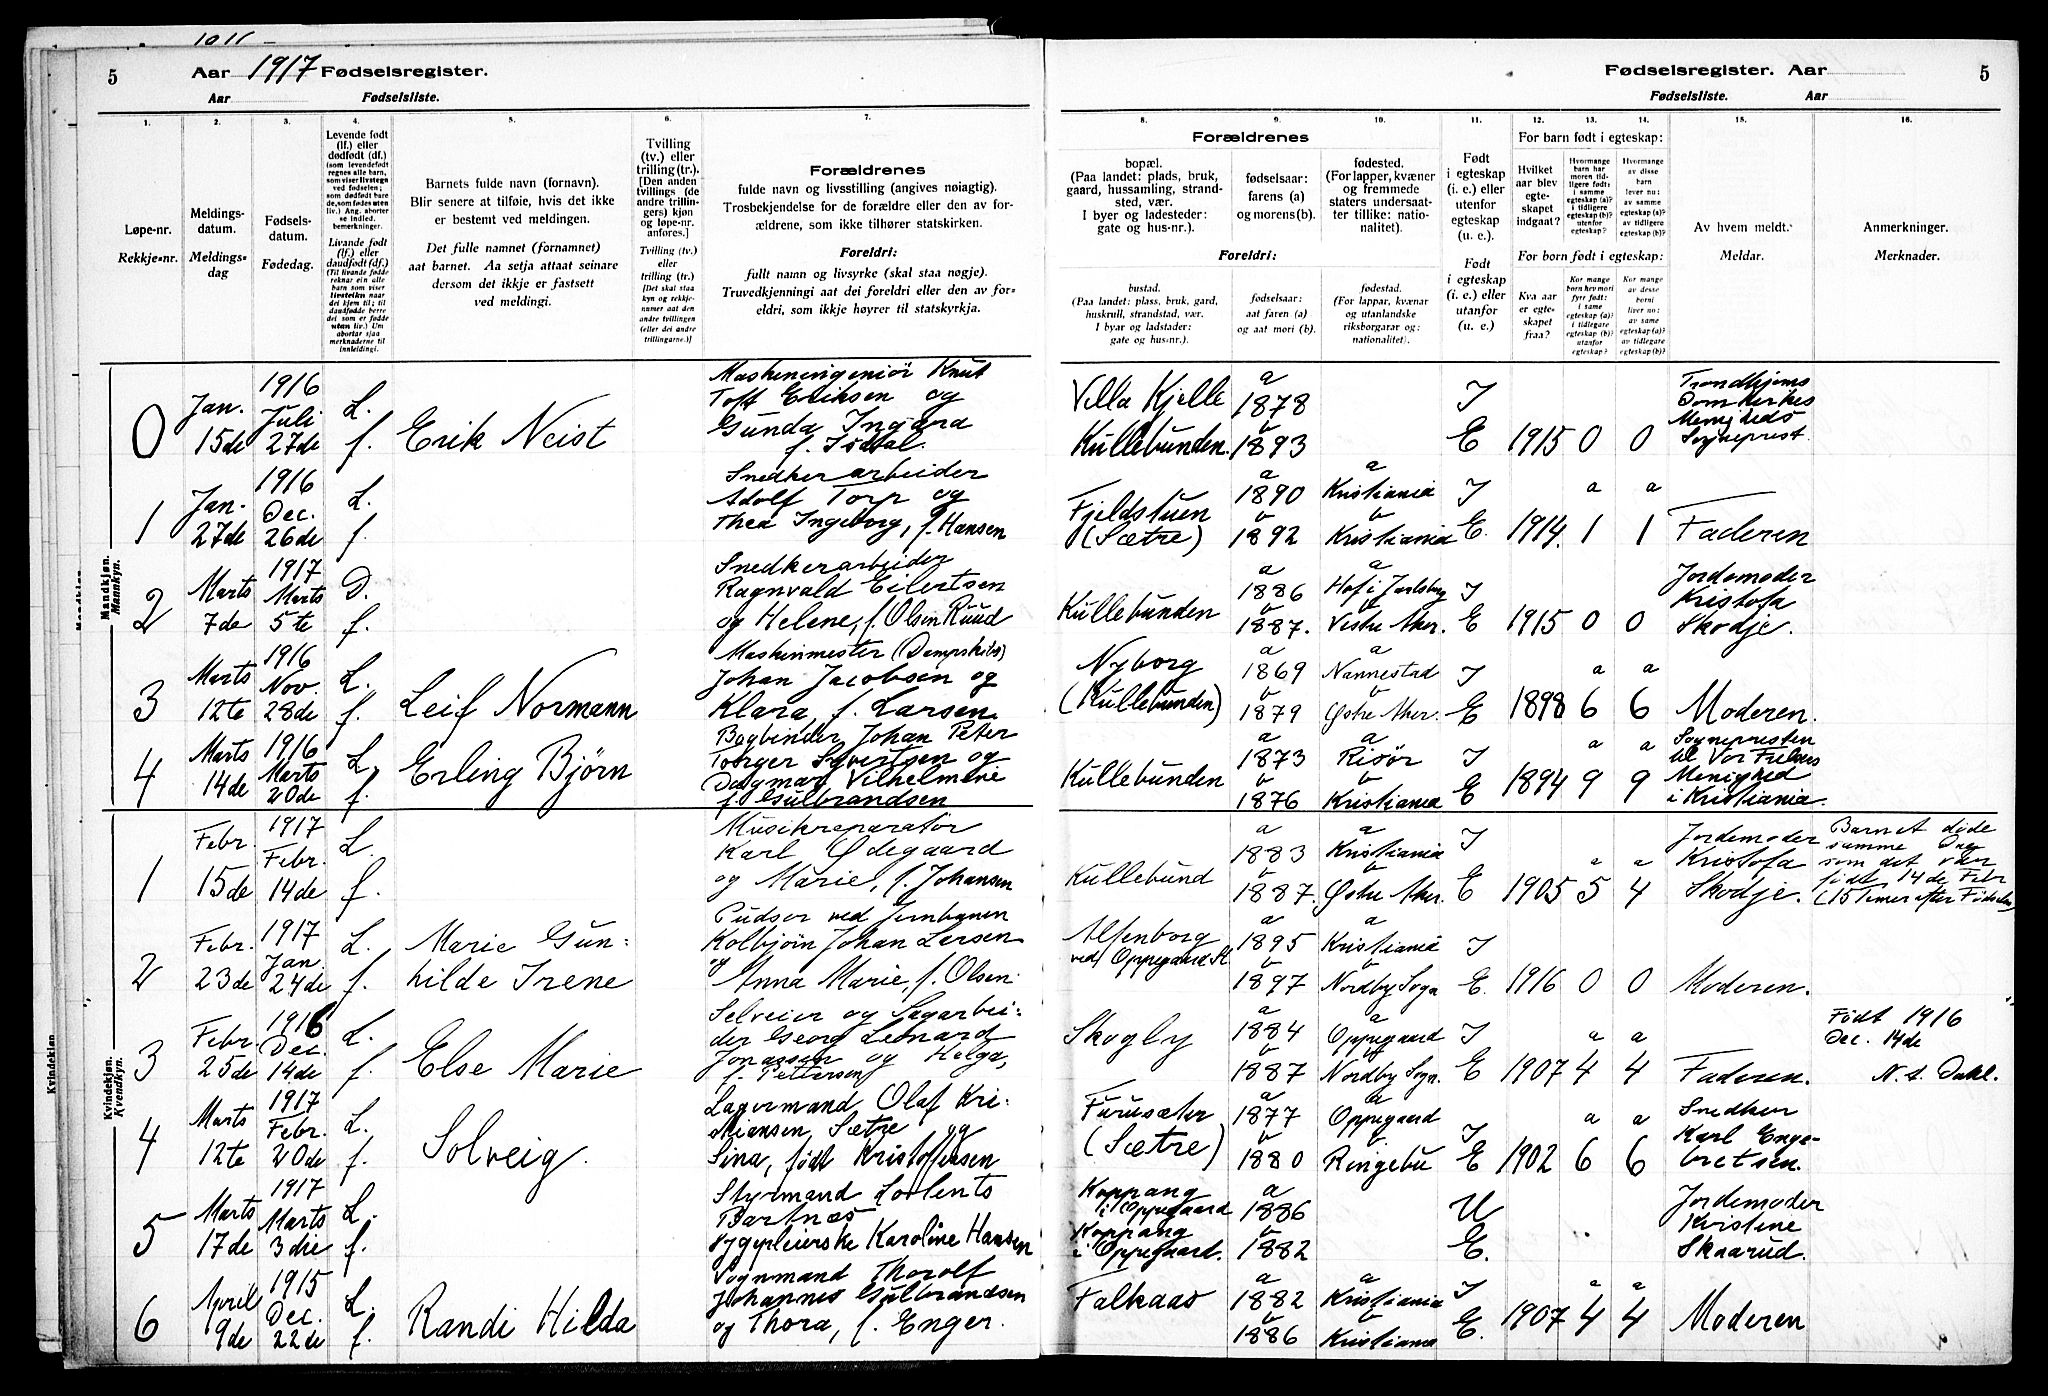 5
Aar 1917 Fødselsregister.
Aar Fødselsliste.
1.
2.
3.
4.
5.
6.
7.
Løpe-nr.
Rekkje-nr.
Meldings-
datum.
Meldings-
dag
Fødsels-
datum.
Fødedag.
Levende født
(lf.) eller
dødfødt (df.)
Livande født
(lf.) eller
daudfødt (df.)
Barnets fulde navn (fornavn).
Blir senere at tilføie, hvis det ikke
er bestemt ved meldingen.
Det fulle namnet (fornamnet)
aat barnet. Aa setja attaat seinare
dersom det ikkje er fastsett
ved meldingi.
Tvilling
(tv.) eller
trilling (tr.).
[Den anden
tvillings (de
andre trillin-
gers) kjøn
og løpe-nr.
anføres.]
Tvilling (tv.)
eller
trilling (tr.)
[Det skal staa
kyn og rekkje-
numer aat den
andre tvillingen
(eller dei andre
trillingarne.)]
Forældrenes
fulde navn og livsstilling (angives nøiagtig).
Trosbekjendelse for de forældre eller den av for-
ældrene, som ikke tilhører statskirken.
Foreldri:
fullt namn og livsyrke (skal staa nøgje).
Truvedkjenningi aat dei foreldri eller den av for-
eldri, som ikkje høyrer til statskyrkja.
Mandkjøn.
Mannkyn.
0 Jan. 15de 1916 Juli 27de L. f. Erik Neist Maskeningeniør Knut
Toft Eriksen og
Gunda Ingeara
f. Isdal.
1 Jan. 27de 1916 Dec. 26de L. f. Snedkerarbeider
Adolf Torp og
Thea Ingeborg, f. Hansen
2 Marts 7de 1917 Marts 5te D. f. Snedkerarbeider
Ragnvald Eilertsen
og Helene, f. Olsen Ruud
3 Marts 12te 1916 Nov. 28de L. f. Leif Normann Maskinmester (Dampskibs)
Johan Jacobsen og
Klara, f. Larsen
4 Marts 14de 1916 Marts 20de L. f. Erling Bjørn Bogbinder Johan Peter
Torger Syvertsen og
Dagmar Vilhelmine
f. Gulbrandsen
Kvindekjøn.
Kvendkyn.
1 Febr. 15de 1917 Febr. 14de L. f. Musikreparatør
Karl Ødegaard
og Marie, f. Johansen
2 Febr. 23de 1917 Jan. 24de L. f. Marie Gun-
hilde Irene Pudser ved Jernbanen
Kolbjørn Johan Larsen
og Anna Marie, f. Olsen
3 Febr. 25de 1916 Dec. 14de L. f. Else Marie Selveier og Sagarbei-
der Georg Leonard
Jonassen og Helga,
f. Pettersen
4 Marts 12te 1917 Febr. 20de L. f. Solveig. Lagermand Olaf Kri-
stiansen Sætre og
Sina, født Kristoffersen
5 Marts 17de 1917 Marts 3die L. f. Styrmand Lorents
Bartnæs
Sygepleierske Karoline Hansen
6 April 9de 1915 Dec. 22de L. f. Randi Hilda Vognmand Thorolf
Johannes Gulbrandsen
og Thora, f. Enger.
Fødselsregister. Aar
5
Fødselsliste. Aar
8.
9.
10.
11.
12.
13.
14.
15.
16.
Forældrenes
bopæl.
(Paa landet: plads, bruk,
gaard, hussamling, strand-
sted, vær.
I byer og ladesteder:
gate og hus-nr.).
fødselsaar:
farens (a)
og morens (b).
fødested.
(For lapper, kvæner
og fremmede
staters undersaat-
ter tillike: natio-
nalitet).
Foreldri:
bustad.
(Paa landet: plass, bruk, gard,
huskrull, strandstad, vær.
I byar og ladstader:
gate og hus-nr.).
fødselsaar:
aat faren (a)
og aat mori (b).
fødestad.
(For lappar, kvænar
og utanlandske
riksborgarar og:
nationalitet).
Født
i egteskap
(i. e.) eller
utenfor
egteskap
(u. e.).
Født
i egteskap
(i. e.) eller
utanfor
(u. e.)
For barn født i egteskap:
Hvilket
aar blev
egte-
skapet
indgaat?
For born født i egteskap:
Kva aar
er egte-
skapet
fraa?
Av hvem meldt.
Meldar.
Anmerkninger.
Merknader.
Villa Kjelle
Kullebunden. a 1878 b 1893 I E 1915 0 0 Trondhjems
Domkirkes
Menigheds
Sogneprest.
Fjeldstuen
(Sætre) a 1890 b 1892 a Kristiania b Kristiania I E. 1914. a 1 a 1 Faderen
Kullebunden a 1886 b 1887. a Hof i Jarlsberg b Vestre Aker. I E 1915 0 0 Jordemoder
Kristofa
Skodje.
Nyborg
(Kullebunden) a 1869 b 1879 a Nannestad b Østre Aker. I E 1898 a 6 a 6 Moderen.
Kullebunden a 1873 b 1876 a Risør b Kristiania I E 1894 a 9 a 9 Sognepresten
til Vor Frelsers
Menighed
i Kristiania.
Kullebund a 1883 b 1887. a Kristiania b Østre Aker. I E 1905 a 5 a 4 Jordemoder
Kristofa
Skodje. Barnet døde
samme Dag
som det var
født 14de Febr
(15 Timer efter Fødselen)
Alfenborg
ved Oppegaard St a 1895 b 1897 a Kristiania b Nordby Sogn I E. 1916 0 0 Moderen.
Skogly a 1884 b 1887 a Oppegaard b Nordby Sogn. I E 1907 a 4 a 4 Faderen. Født 1916
Dec. 14de
N. S. Dahl.
Furusæter
(Sætre) a 1877 b 1880 a Oppegaard b Ringebu I E 1902 a 6 a 6 Snedker
Karl Enge-
bretsen.
Koppang
i Oppegaard
Koppang
i Oppegaard. a 1886 b 1882 U E. Jordemoder
Kristene
Skaarud.
Falkaas a 1882 b 1886 a Kristiania b Kristiania I E. 1907 a 4 a 4 Moderen